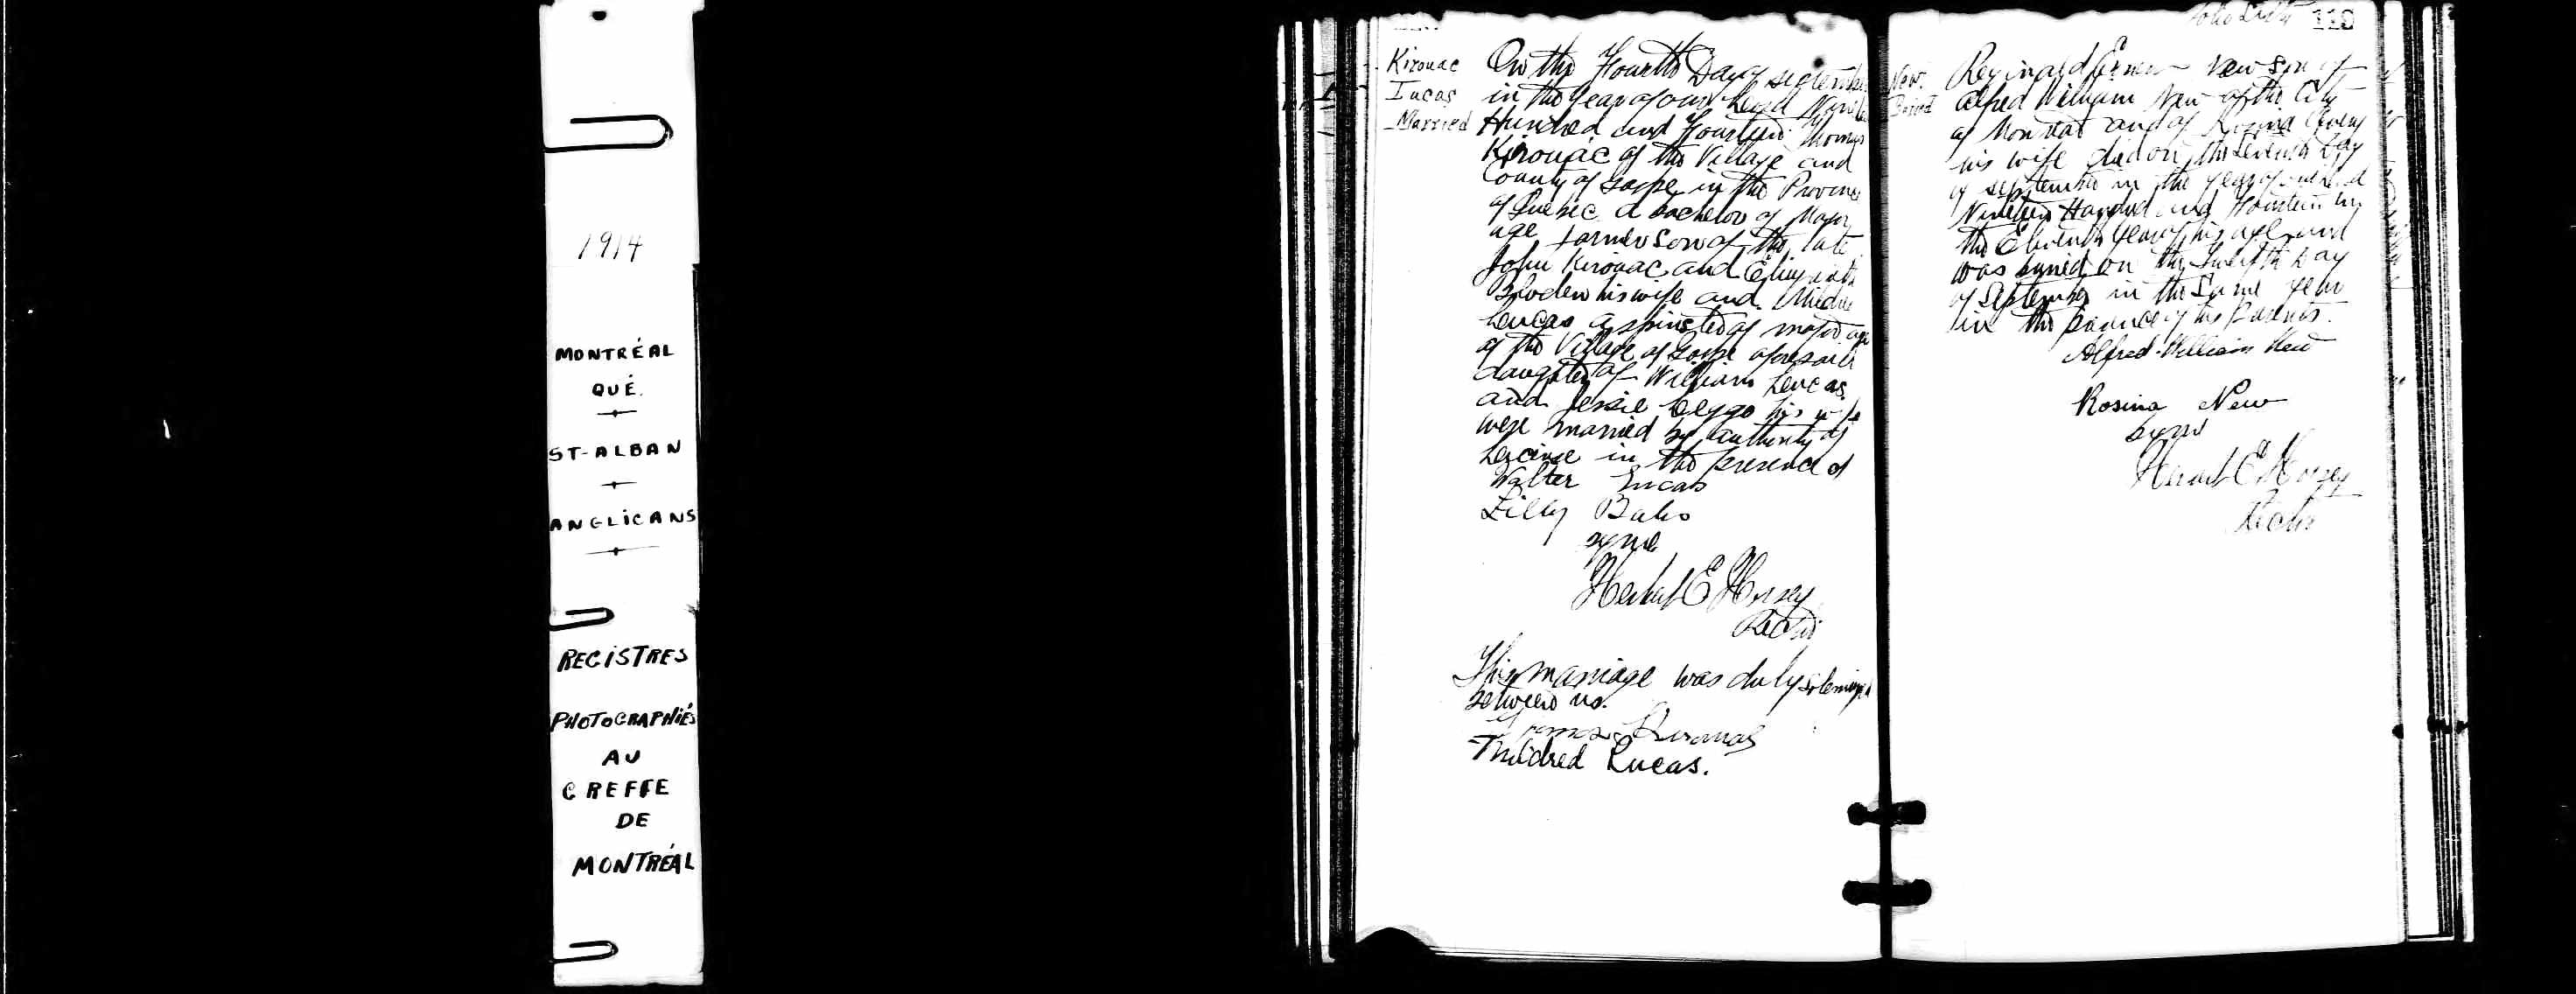 1914
MONTRÉAL
QUÉ.
ST-ALBAN
ANGLICANS
REGISTRES
PHOTOGRAPHIÉS
AU
GREFFE
DE
MONTRÉAL
Kirouac
Lucas
Married
On the Fourth Day of September
in the year of our Lord Nineteen
Hundred and Fourteen Thomas
Kirouac of the Village and
County of Gaspe in the Province
of Quebec a bachelor of Major
age farmer son of the late
John Kirouac and Elizabeth
his wife and Mildred
Lucas a spinster of major age
of the Village of Gaspe aforesaid
daughter of William Lucas
and Jessie his wife
were married by authority of
License in the presence of
Walter Lucas
Lilly
by me
Herbert E Horsey
Rector
This marriage was duly solemnized
between us.
Thomas Kirouac
Mildred Lucas.
110
New.
Buried
Reginald New son of
Alfred William New of the City
of Montreal and of Rosina
his wife died on the day
of September in the year of our Lord
Nineteen Hundred and Fourteen in
the Eleventh year of his age and
was buried on the Twelfth day
of September in the same year
in the presence of his Parents.
Alfred William New
Rosina New
by me
Herbert E Horsey
Rector